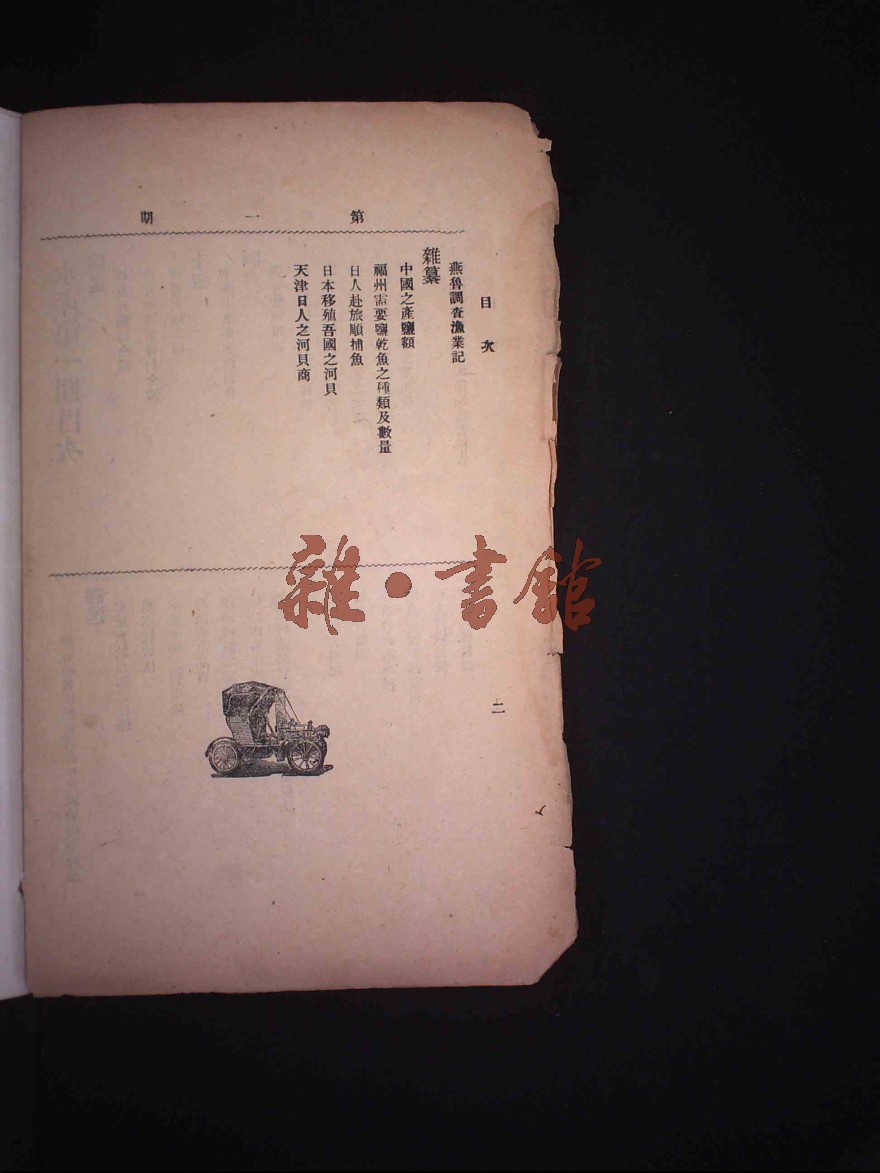 第一期
目次
燕魯調查漁業記
雜纂
中國之產鹽額
福州需要鹽乾魚之種類及數量
日人赴旅順捕魚
日本移殖吾國之河貝
天津日人之河貝商
二
雜·書館